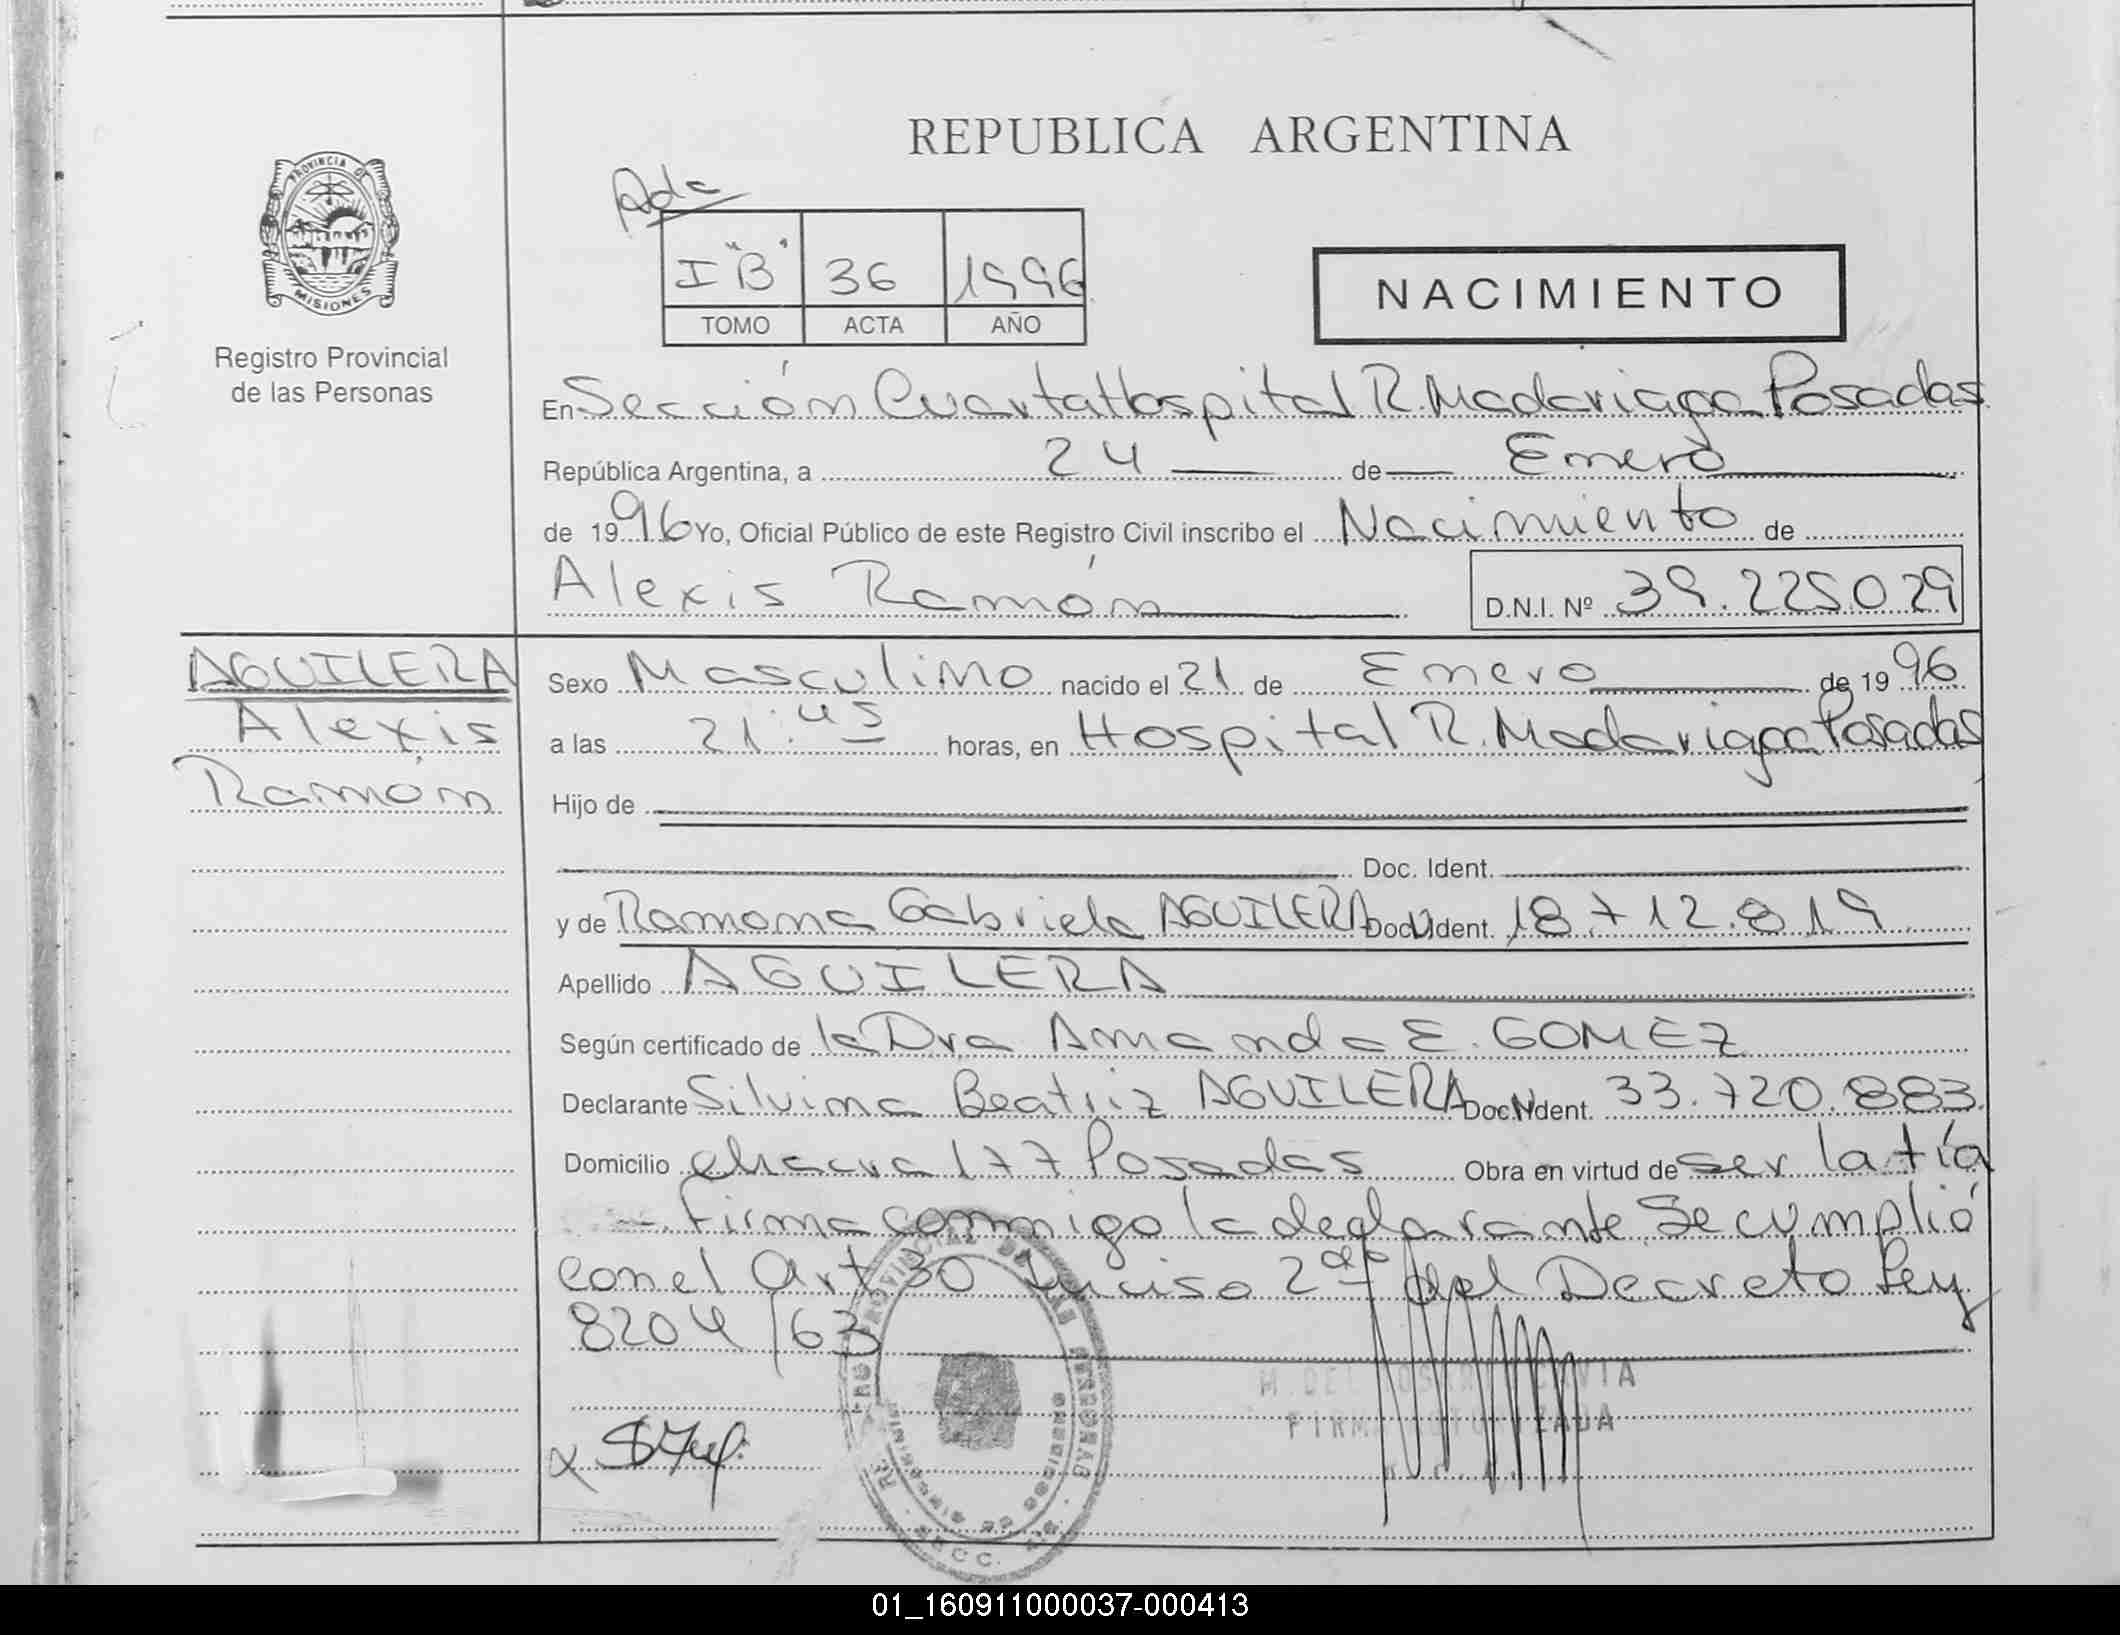 REPUBLICA ARGENTINA
PROVINCIA DE
MISIONES
Registro Provincial
de las Personas
Adc
I "B" 36 1996
TOMO ACTA AÑO
NACIMIENTO
En Sección Cuarta Hospital R. Madariaga Posadas
República Argentina, a 24 de Enero
de 1996 Yo, Oficial Público de este Registro Civil inscribo el Nacimiento de
Alexis Ramón D.N.I. Nº 39.225029
AGUILERA
Alexis
Ramón
Sexo Masculino nacido el 21 de Enero de 1996
a las 21:45 horas, en Hospital R. Madariaga Posadas
Hijo de
Doc. Ident.
y de Ramona Gabriela AGUILERA Doc. Ident. 18.712.819
Apellido AGUILERA
Según certificado de la Dra Amanda E. GOMEZ
Declarante Silvina Beatriz AGUILERA Doc. Ident. 33.720.883
Domicilio chacra 177 Posadas Obra en virtud de ser la tía
Firma conmigo la declarante. Se cumplió
con el Art 30 Inciso 2do del Decreto Ley
8204/63
FIRMA AUTORIZADA
01_160911000037-000413